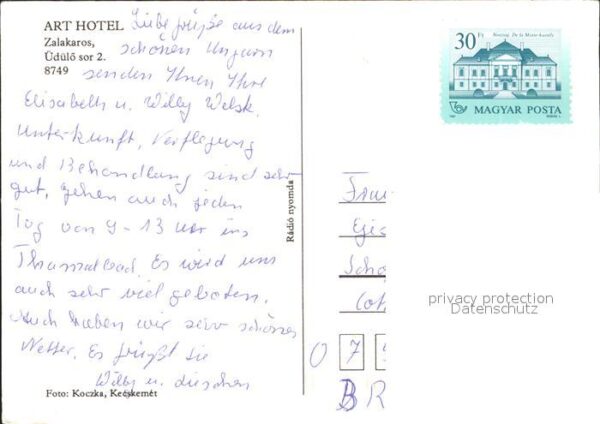 ART HOTEL
Zalakaros,
Üdülő sor 2.
8749
Liebe Grüße aus dem
schönen Ungarn
senden Ihnen Ihre
Elisabeth u. Willy
Unterkunft, Verpflegung
und Behandlung sind sehr
gut, gehen auch jeden
Tag von 9-13 Uhr ins
Thermalbad. Es wird uns
auch sehr viel geboten.
Auch haben wir sehr schönes
Wetter. Es grüßt Sie
Willy u.
Foto: Koczka, Kecskemét
Rádió nyomda
30 Ft
MAGYAR POSTA
Frau
privacy protection
Datenschutz
0 7
B R